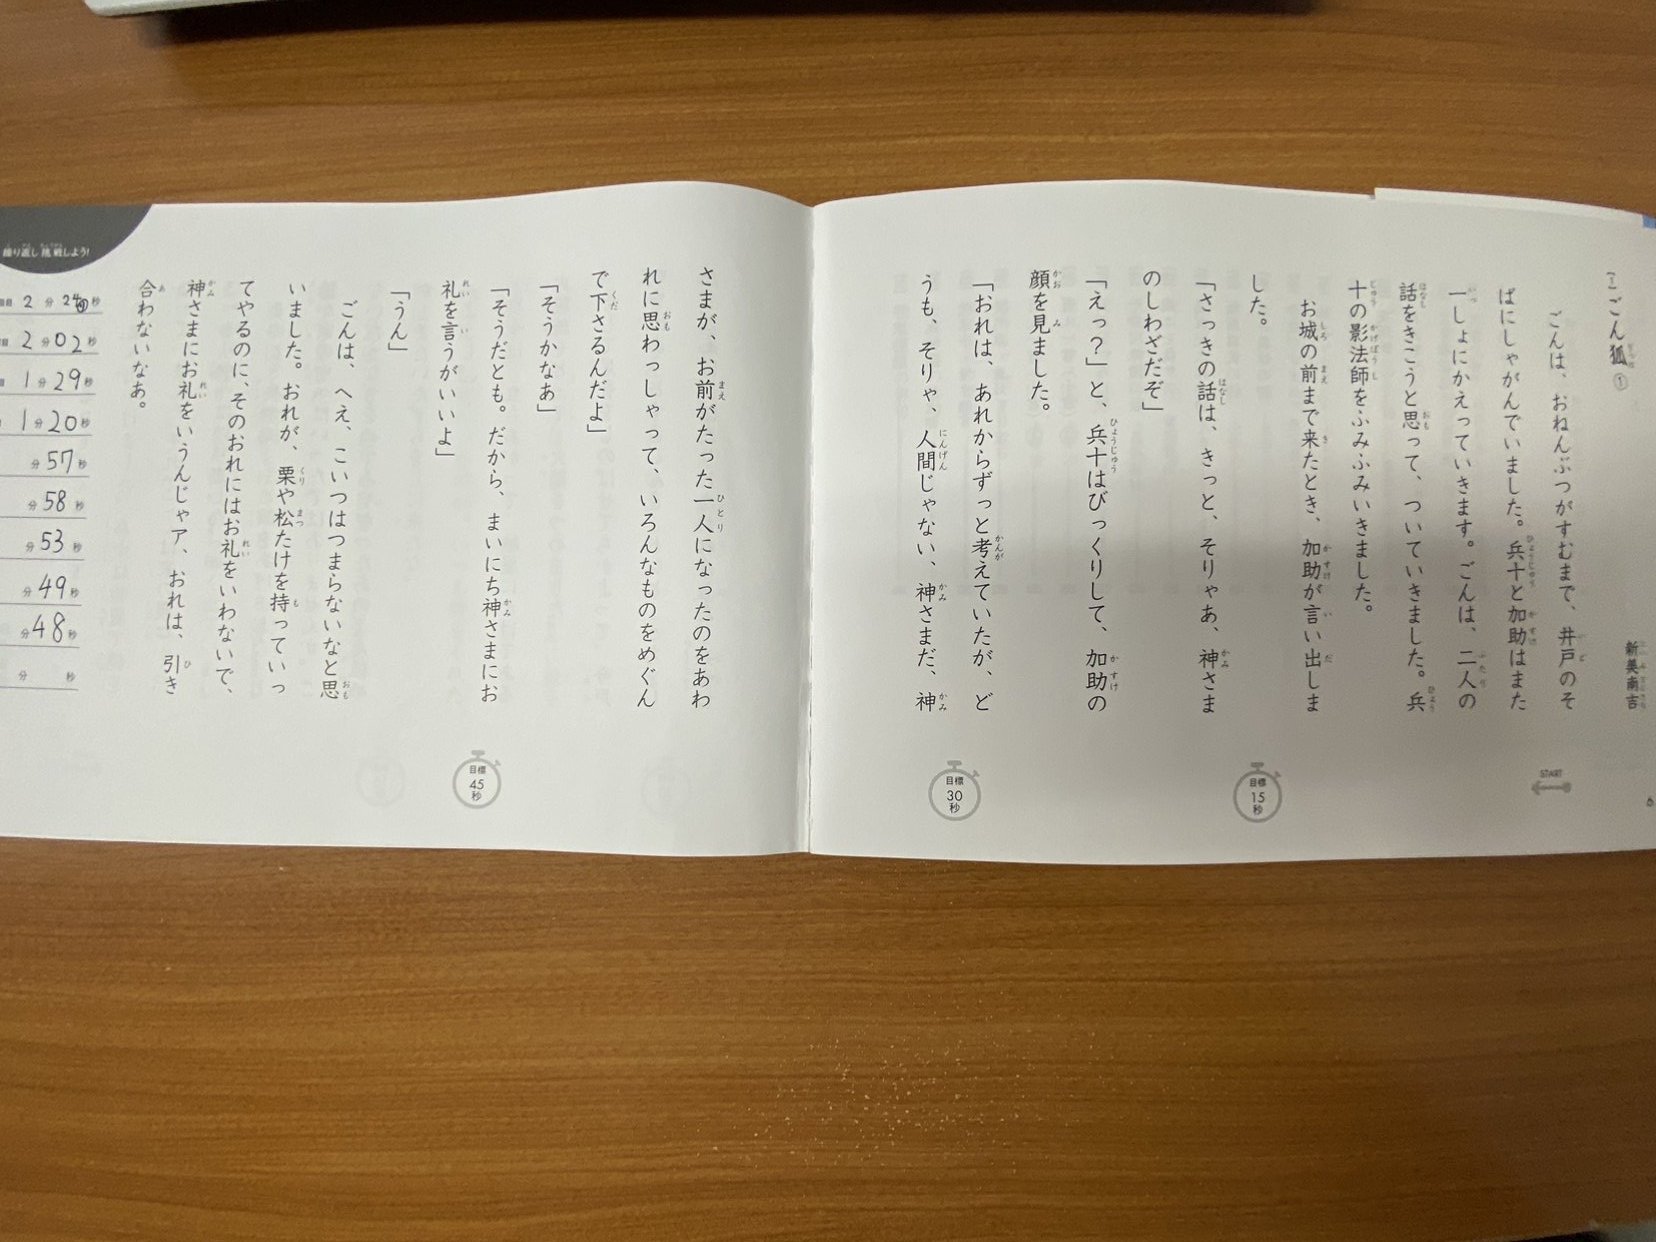 ごん狐①
新美南吉
START
ごんは、おねんぶつがすむまで、井戸のそ
ばにしゃがんでいました。兵十と加助はまた
一しょにかえっていきます。ごんは、二人の
話をきこうと思って、ついていきました。兵
十の影法師をふみふみいきました。
お城の前まで来たとき、加助が言い出しま
した。
目標
15
秒
「さっきの話は、きっと、そりゃあ、神さま
のしわざだぞ」
「えっ？」と、兵十はびっくりして、加助の
顔を見ました。
「おれは、あれからずっと考えていたが、ど
うも、そりゃ、人間じゃない、神さまだ、神
目標
30
秒
さまが、お前がたった一人になったのをあわ
れに思わっしゃって、いろんなものをめぐん
で下さるんだよ」
「そうかなあ」
「そうだとも。だから、まいにち神さまにお
礼を言うがいいよ」
目標
45
秒
「うん」
ごんは、へえ、こいつはつまらないなと思
いました。おれが、栗や松たけを持っていっ
てやるのに、そのおれにはお礼をいわないで、
神さまにお礼をいうんじゃア、おれは、引き
合わないなあ。
繰り返し挑戦しよう!
2分24秒
2分02秒
1分29秒
1分20秒
分57秒
分58秒
分53秒
分49秒
分48秒
分 秒